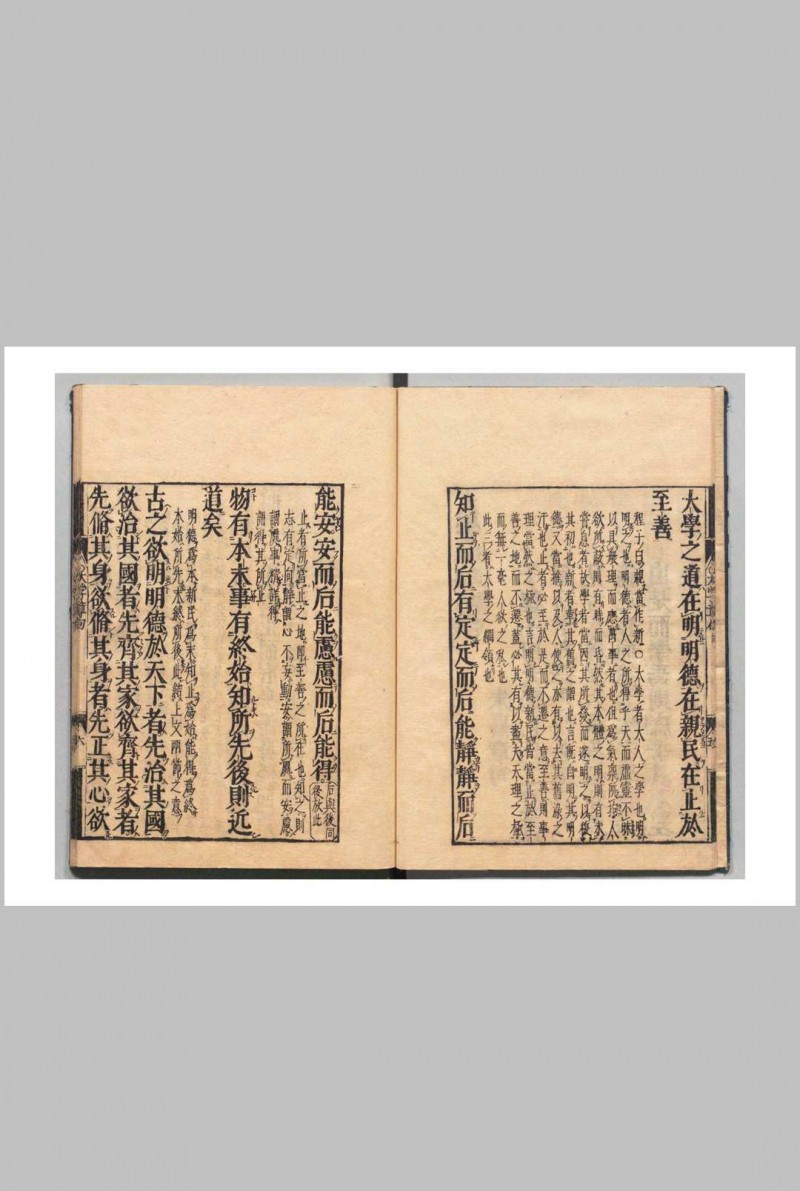 大學之道在明明德在親民在止於
至善
程子曰親當作新○大學者大人之學也明
明之也明德者人之所得乎天而虛靈不昧
以具衆理而應萬事者也但爲氣稟所拘人
欲所蔽則有時而昏然其本體之明則有未
嘗息者故學者當因其所發而遂明之以復
其初也新者革其舊之謂也言旣自明其明
德又當推以及人使之亦有以去其舊染之
汙也止者必至於是而不遷之意至善則事
理當然之極也言明明德新民皆當止於至
善之地而不遷蓋必其有以盡夫天理之極
而無一毫人欲之私也
此三者大學之綱領也
知止而后有定定而后能靜靜而后
能安安而后能慮慮而后能得
后與後同
後放此
止者所當止之地即至善之所在也知之則
志有定向靜謂心不妄動安謂所處而安慮
謂處事精詳得
謂得其所止
物有本末事有終始知所先後則近
道矣
明德爲本新民爲末知止爲始能得爲終
本始所先末終所後此結上文兩節之意
古之欲明明德於天下者先治其國
欲治其國者先齊其家欲齊其家者
先脩其身欲脩其身者先正其心欲